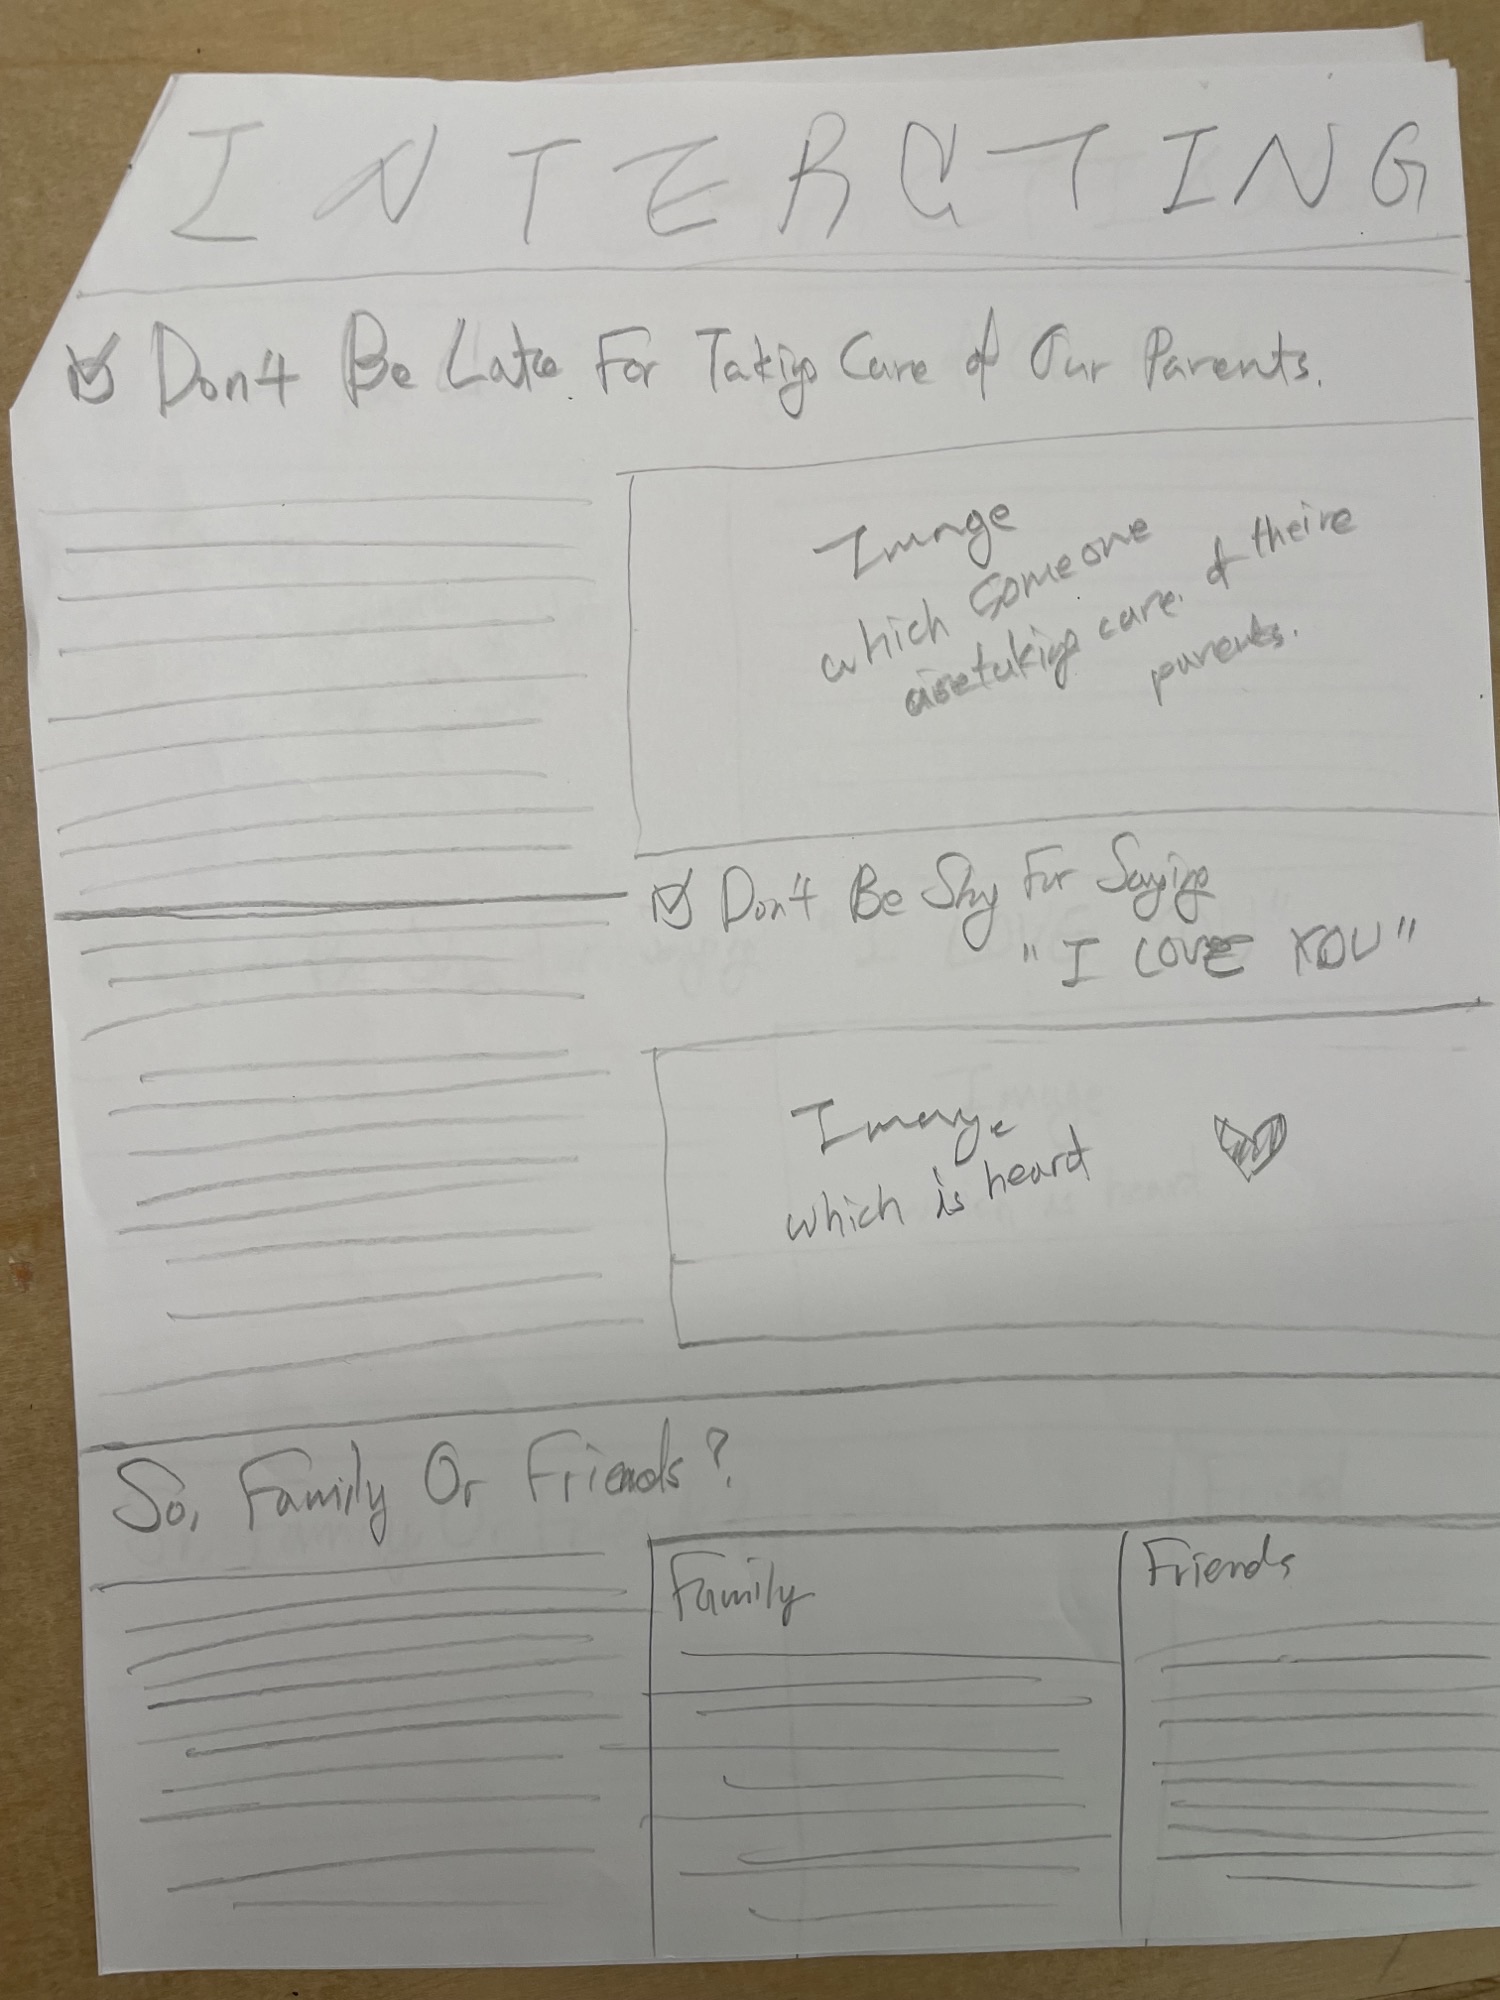 INTERCTING
Don't Be Late For Taking Care of Our Parents.
Image
which someone
are taking care of theire
parents.
Don't Be Shy For Saying
"I LOVE YOU"
Image
which is heard
So, Family Or Friends?
Family
Friends